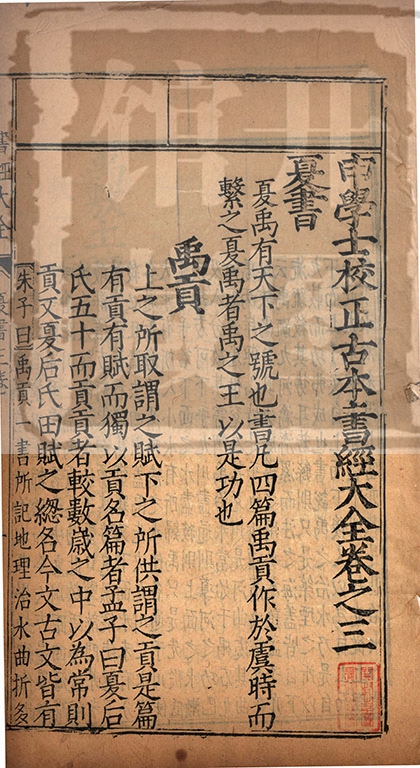 申學士校正古本書經大全卷之三
夏書
夏禹有天下之號也書凡四篇禹貢作於虞時而
繫之夏禹者禹之王以是功也
禹貢
上之所取謂之賦下之所供謂之貢是篇
有貢有賦而獨以貢名篇者孟子曰夏后
氏五十而貢貢者較數歲之中以為常則
貢又夏后氏田賦之緫名今文古文皆有
朱子曰禹貢一書所記地理治水曲折多
書經大全 夏書三卷